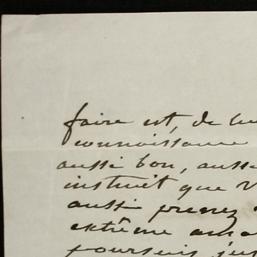 faire est, de lu
connoissance
aussi bon, auss
instruit que V
aussi prenez
extrême ama
poursuis jus